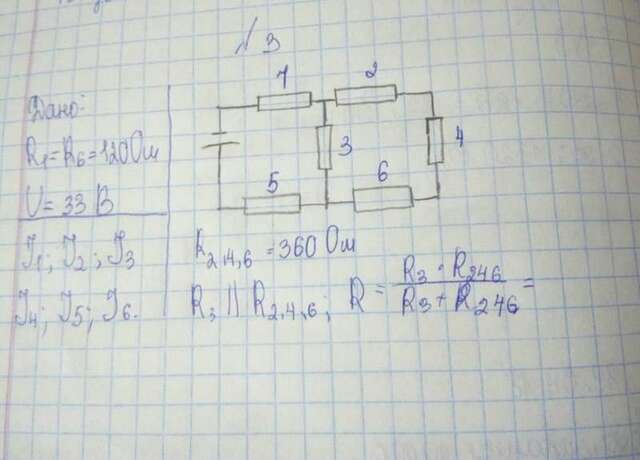 № 3
Дано:
R₁=R₆=120 Ом
U=33 В
I₁; I₂; I₃
I₄; I₅; I₆.
1
2
3
4
5
6
R₂,₄,₆ = 360 Ом
R₃ || R₂,₄,₆; R = R₃ · R₂₄₆ / R₃ + R₂₄₆ =